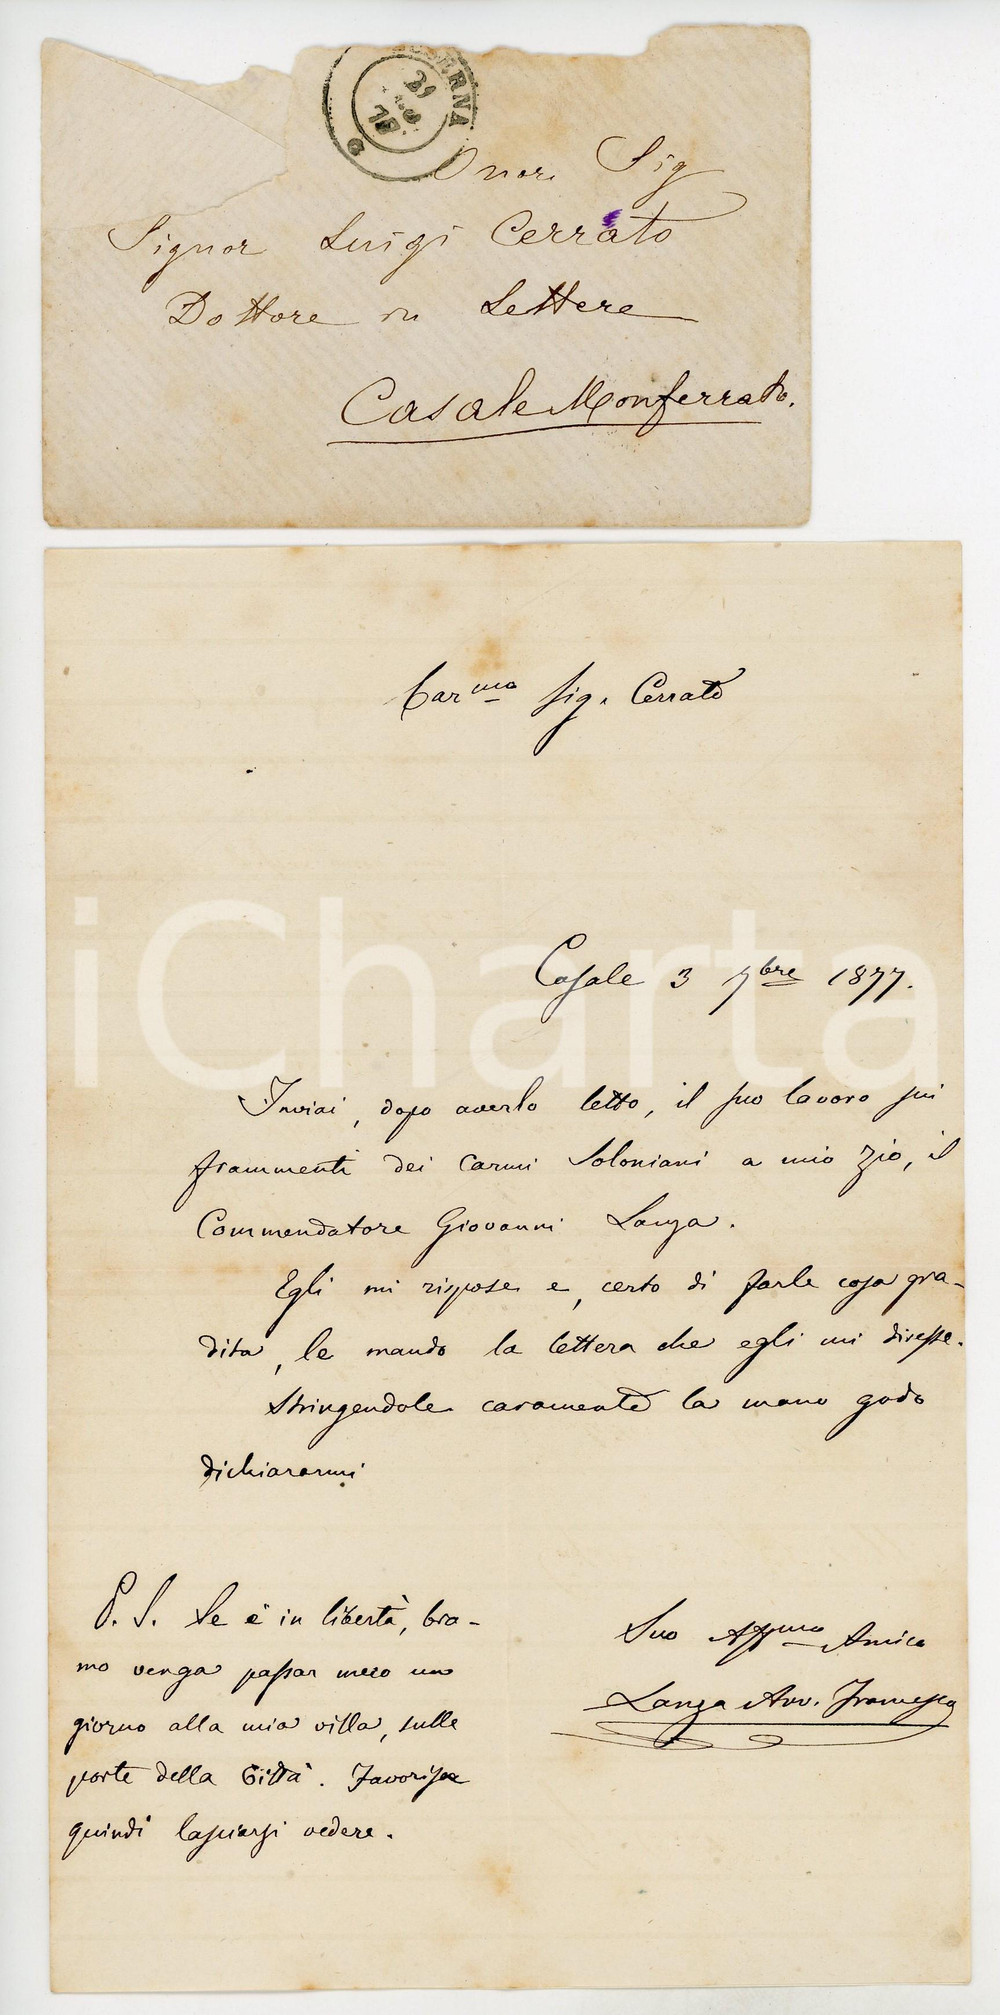 ERNA
29
78
Onor. Sig
Signor Luigi Cerrato
Dottore in Lettere
Casale Monferrato.
Car.mo Sig. Cerrato
iCharta
Casale 3 7bre 1877.
Inviai, dopo averlo letto, il suo lavoro sui
frammenti dei Carmi Soloniani a mio Zio, il
Commendatore Giovanni Lanza.
Egli mi rispose e, certo di farle cosa gra-
dita, le mando la lettera che egli mi diresse.
Stringendole caramente la mano godo
dichiararmi
Suo Aff.mo Amico
Lanza Avv. Francesco
P. S. Se è in libertà, bra-
mo venga passar meco un
giorno alla mia villa, sulle
porte della Città. Favorisca
quindi lasciarsi vedere.